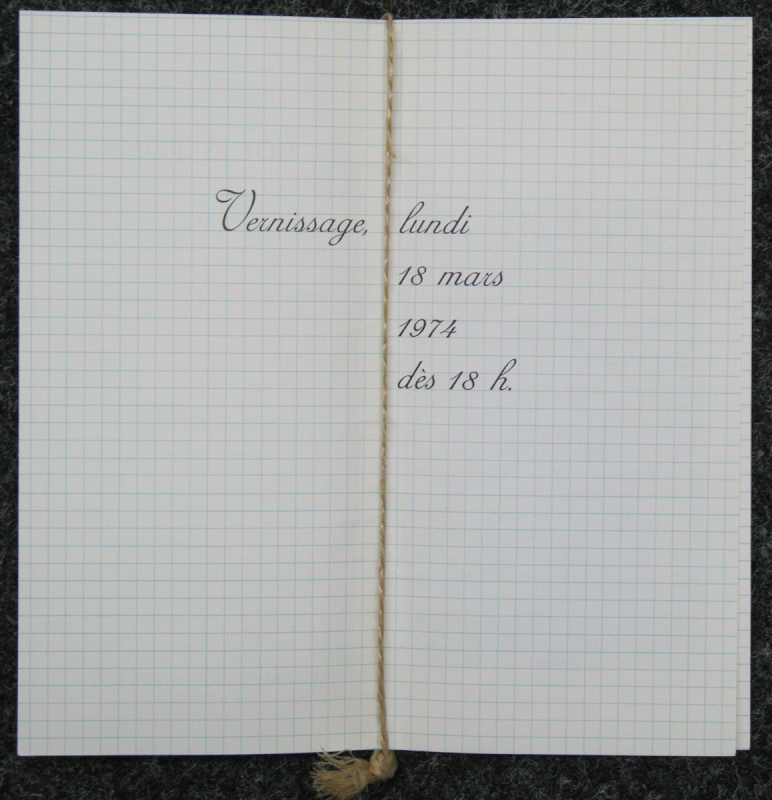 Vernissage, lundi
18 mars
1974
dès 18 h.